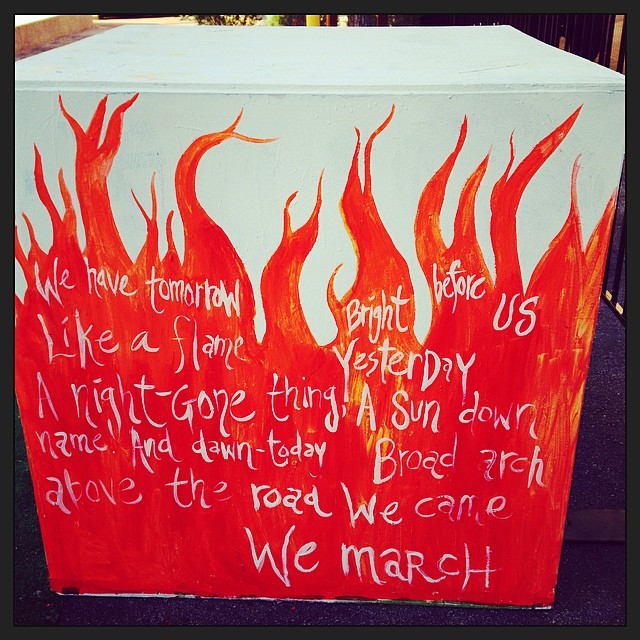 We have tomorrow Bright before US
Like a flame Yesterday
A night-Gone thing, A Sun down
name. And dawn-today Broad arch
above the road We came
We march